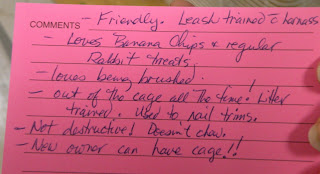 - Friendly. Leash trained c̄ harness
COMMENTS
- Loves Banana Chips & regular
Rabbit treats.
- loves being brushed.
- out of the cage all the time! Litter
trained. Used to nail trims.
- Not destructive! Doesn't chew.
- New owner can have cage!!